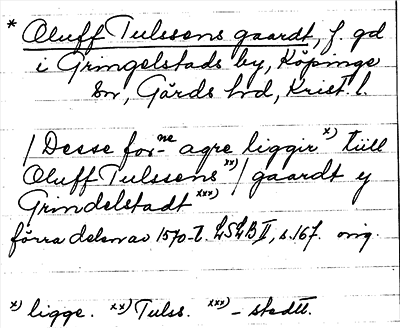 * Oluff Tulssens gaardt, f. gd
i Gringelstads by, Köpinge
sn, Gärds hd, Krist. l.
/ Desse for-ne agre liggir x) tiill
Oluff Tulssens xx) / gaardt y
Grindelstadt xxx)
förra delen av 1570-t. LSLB II, s. 167. orig.
x) ligge. xx) Tulss. xxx) -stedtt.